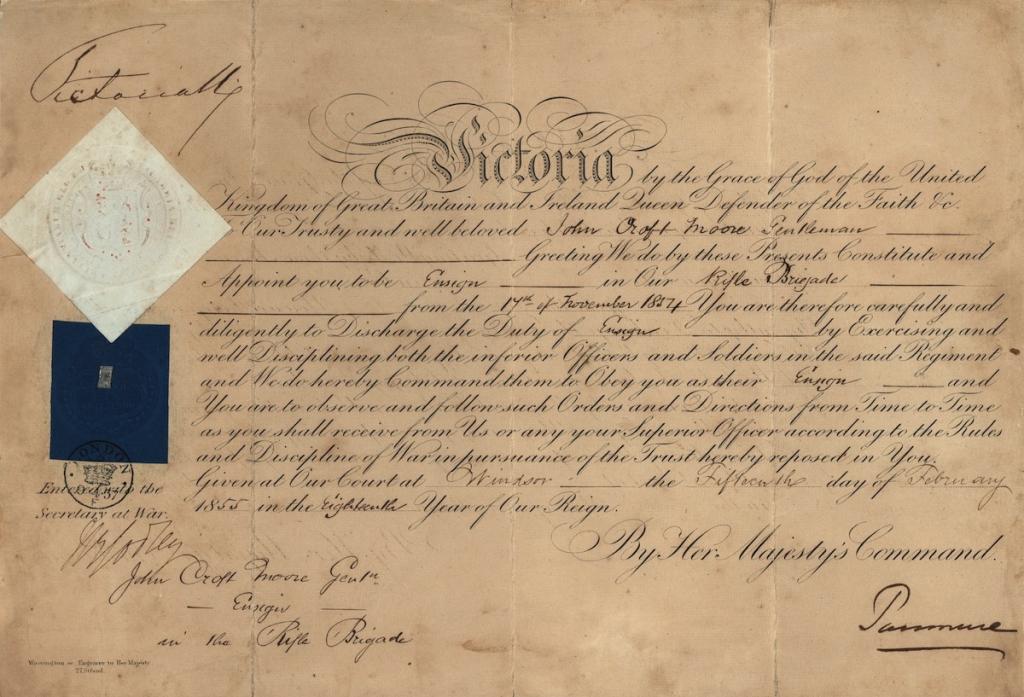 Victoria R
Victoria by the Grace of God of the United
Kingdom of Great Britain and Ireland Queen Defender of the Faith &c.
To Our Trusty and well beloved John Croft Moore Gentleman
Greeting We do by these Presents Constitute and
Appoint you to be Ensign in Our Rifle Brigade
from the 17th of November 1854 You are therefore carefully and
diligently to Discharge the Duty of Ensign by Exercising and
well Disciplining both the inferior Officers and Soldiers in the said Regiment
and We do hereby Command them to Obey you as their Ensign and
You are to observe and follow such Orders and Directions from Time to Time
as you shall receive from Us or any your Superior Officer according to the Rules
and Discipline of War in pursuance of the Trust hereby reposed in You.
Given at Our Court at Windsor the Fifteenth day of February
1855 in the Eighteenth Year of Our Reign.
By Her Majesty's Command.
Panmure
LONDON
Entered with the
Secretary at War.
John Croft Moore Gentn
Ensign
in the Rifle Brigade
Engraver to Her Majesty
27, Strand.